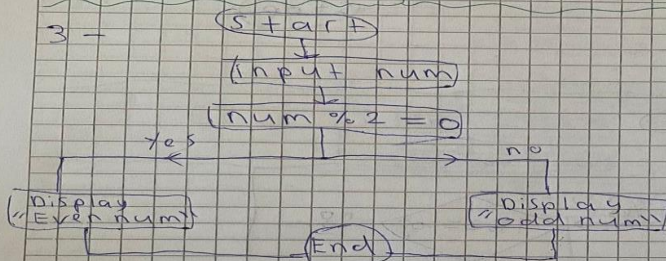 3 -
Start
input num
num % 2 = 0
Yes
no
Display
"Even num"
Display
"Odd num"
End